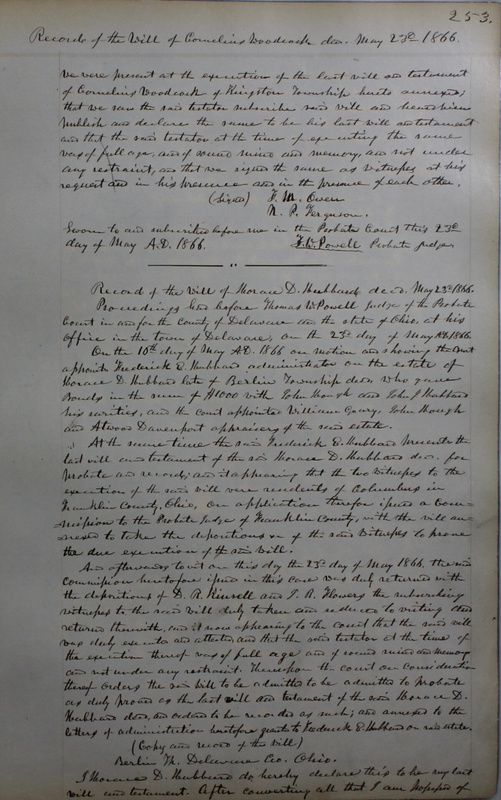 253.
Record of the Will of Cornelius Woodcock decd. May 23d 1866.
we were present at the execution of the last will and testament
of Cornelius Woodcock of Kingston Township hereto annexed;
that we saw the said testator subscribe said will and heard him
publish and declare the same to be his last will and testament
and that the said testator at the time of executing the same
was of full age, and of sound mind and memory, and not under
any restraint, and that we signed the same as witnesses at his
request and in his presence and in the presence of each other.
(Signed) F. M. Owen
N. P. Ferguson.
Sworn to and subscribed before me in the Probate Court this 23d
day of May A.D. 1866. T. W. Powell Probate Judge
Record of the Will of Horace D. Hubbard decd. May 23d 1866.
Proceedings had before Thomas W. Powell Judge of the Probate
Court in and for the County of Delaware and the state of Ohio, at his
office in the town of Delaware, on the 23d day of May A.D. 1866.
On the 10th day of May A.D. 1866 on motion and showing the Court
appoints Frederick E. Hubbard administrator on the estate of
Horace D. Hubbard late of Berlin Township decd. who gave
Bonds in the sum of $1000 with John Hough and John J Hubbard
his sureties, and the court appointed William Geary, John Hough
and Atwood Davenport appraisers of the said estate.
At the same time the said Frederick E. Hubbard presents the
last will and testament of the said Horace D. Hubbard decd. for
Probate and record; and it appearing that the two witnesses to the
execution of the said will were residents of Columbus in
Franklin County, Ohio, on application therefor issued a Com-
-mission to the Probate Judge of Franklin County, with the will an-
-nexed to take the depositions of the said witnesses to prove
the due execution of the said will.
And afterwards to wit on this day the 23d day of May 1866, the said
commission heretofore issued in this case was duly returned with
the depositions of D. R. Kinsell and J. R. Flowers the subscribing
witnesses to the said will duly taken and reduced to writing and
returned therewith, and it now appearing to the court that the said will
was duly executed and attested, and that the said testator at the time of
the execution thereof was of full age and of sound mind and memory
and not under any restraint. Thereupon the court on consideration
thereof orders the said will to be admitted to be admitted to probate
as duly proved as the last will and testament of the said Horace D.
Hubbard decd, and ordered to be recorded as such; and annexed to the
letters of administration heretofore granted to Frederick E Hubbard on said estate.
(Copy and record of the will)
Berlin Tp. Delaware Co. Ohio.
I Horace D. Hubbard do hereby declare this to be my last
will and testament. After converting all that I am possessed of